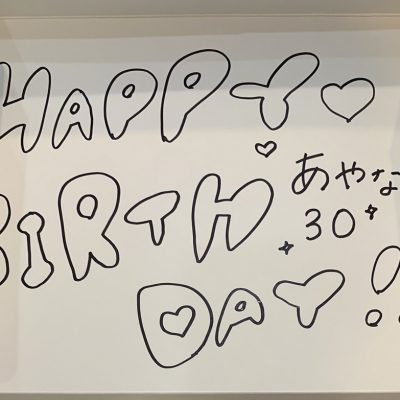 HAPPY♡
BIRTH♡
あやな
30
DAY!!